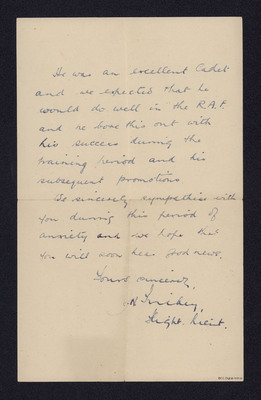 He was an excellent Cadet
and we expected that he
would do well in the R.A.F.
and he bore this out with
his success during the
training period and his
subsequent promotions
We sincerely sympathise with
you during this period of
anxiety and we hope that
you will soon hear good news.
Yours sincerely,
Flight. Lieut.